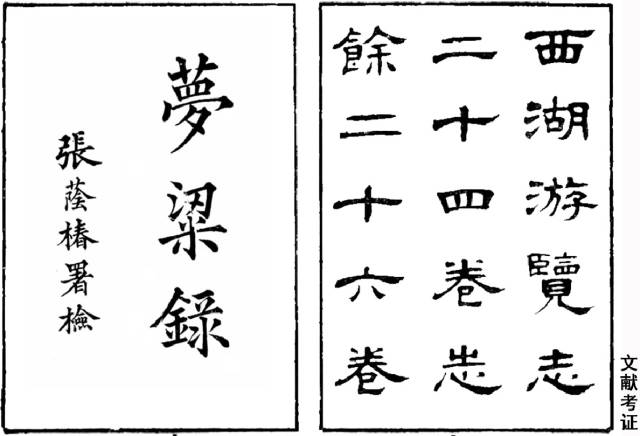 西湖游覽志
二十四卷志
餘二十六卷
夢粱録
張蔭椿署檢
文献考证